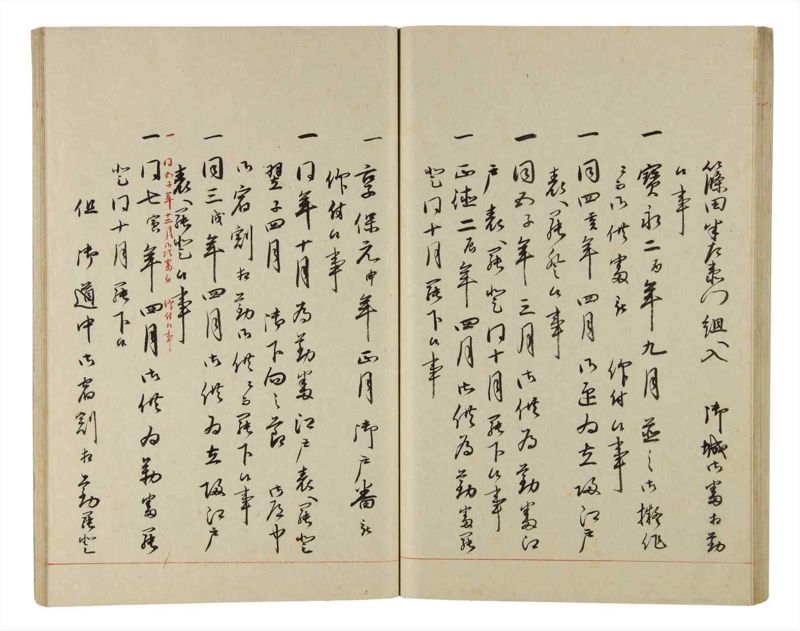 篠田半左衛門組入 御城御番相勤
候事
一 寳永二酉年九月 並之御擬作
 御供番被 仰付候事
一 同四亥年四月 御迎為立帰江戸
表罷登候事
一 同五子年三月御供為勤番江
戸表罷登同十月罷下候事
一 正徳二辰年四月御供為勤番罷
登同十月罷下候事
一 享保元申年正月 御戸番被
仰付候事
一 同年十月為勤番江戸表罷登
翌子四月 御下向之節 御道中
御宿割相勤御供 罷下候事
一 同三戌年四月御供為立帰江戸
表罷登候事
一 同五子年十二月御供番被 仰付候事
一 同七寅年四月御供為勤番罷
登同十月罷下候
但 御道中御宿割相勤罷登